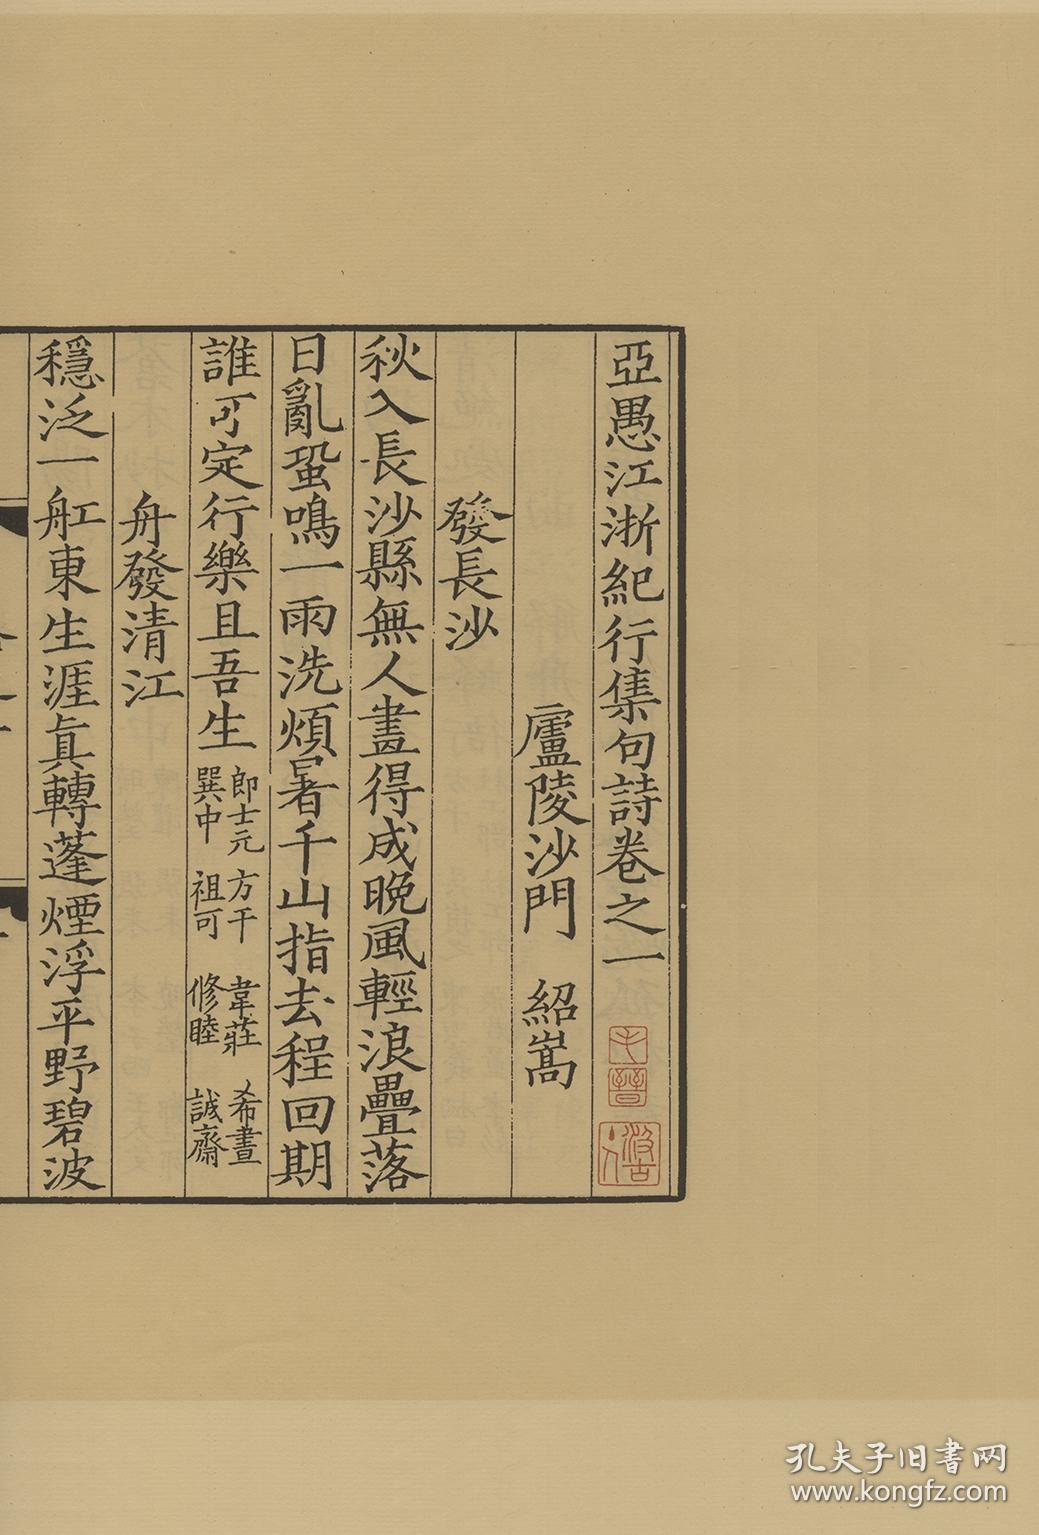 亞愚江浙紀行集句詩卷之一
廬陵沙門 紹嵩
發長沙
秋入長沙縣無人畫得成晚風輕浪疊落
日亂蛩鳴一雨洗煩暑千山指去程回期
誰可定行樂且吾生
郎士元 方干 韋莊 希晝
巽中 祖可 修睦 誠齋
舟發清江
穩泛一舡東生涯眞轉蓬煙浮平野碧波
毛晉
汲古
孔夫子旧書网
www.kongfz.com